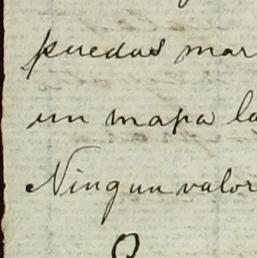 puedas mar
un mapa la
Ningun valor